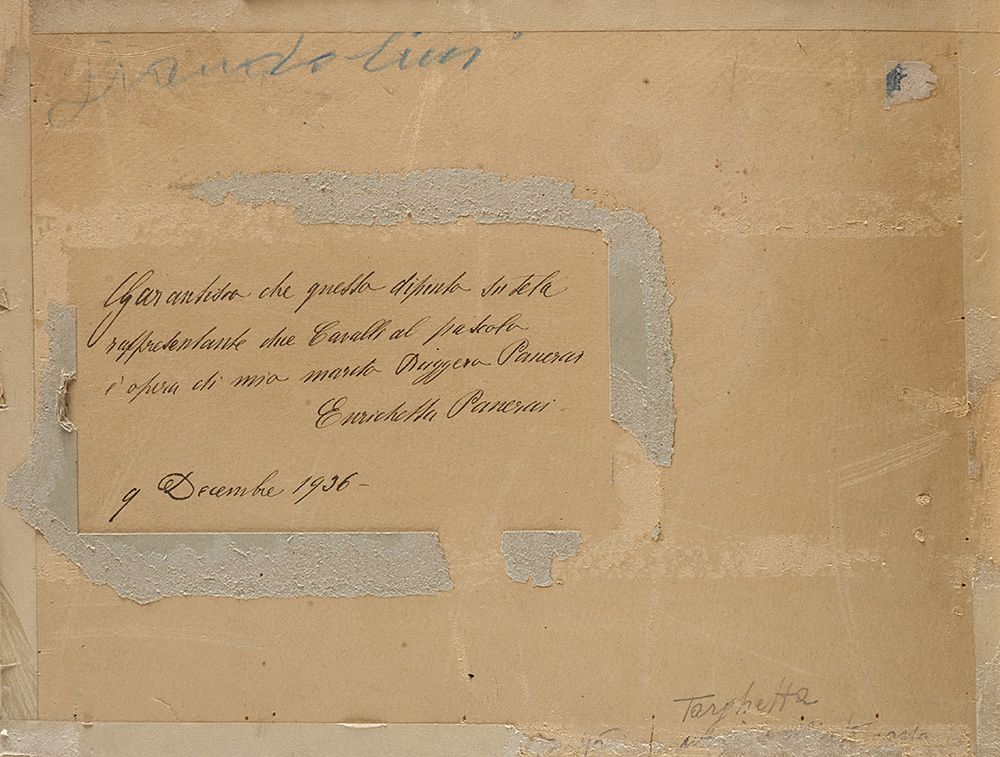 Garantisco che questo dipinto su tela
rappresentante due Cavalli al pascolo
è opera di mio marito Ruggero Panerai
Enrichetta Panerai
9 Decembre 1936 -
Targhetta